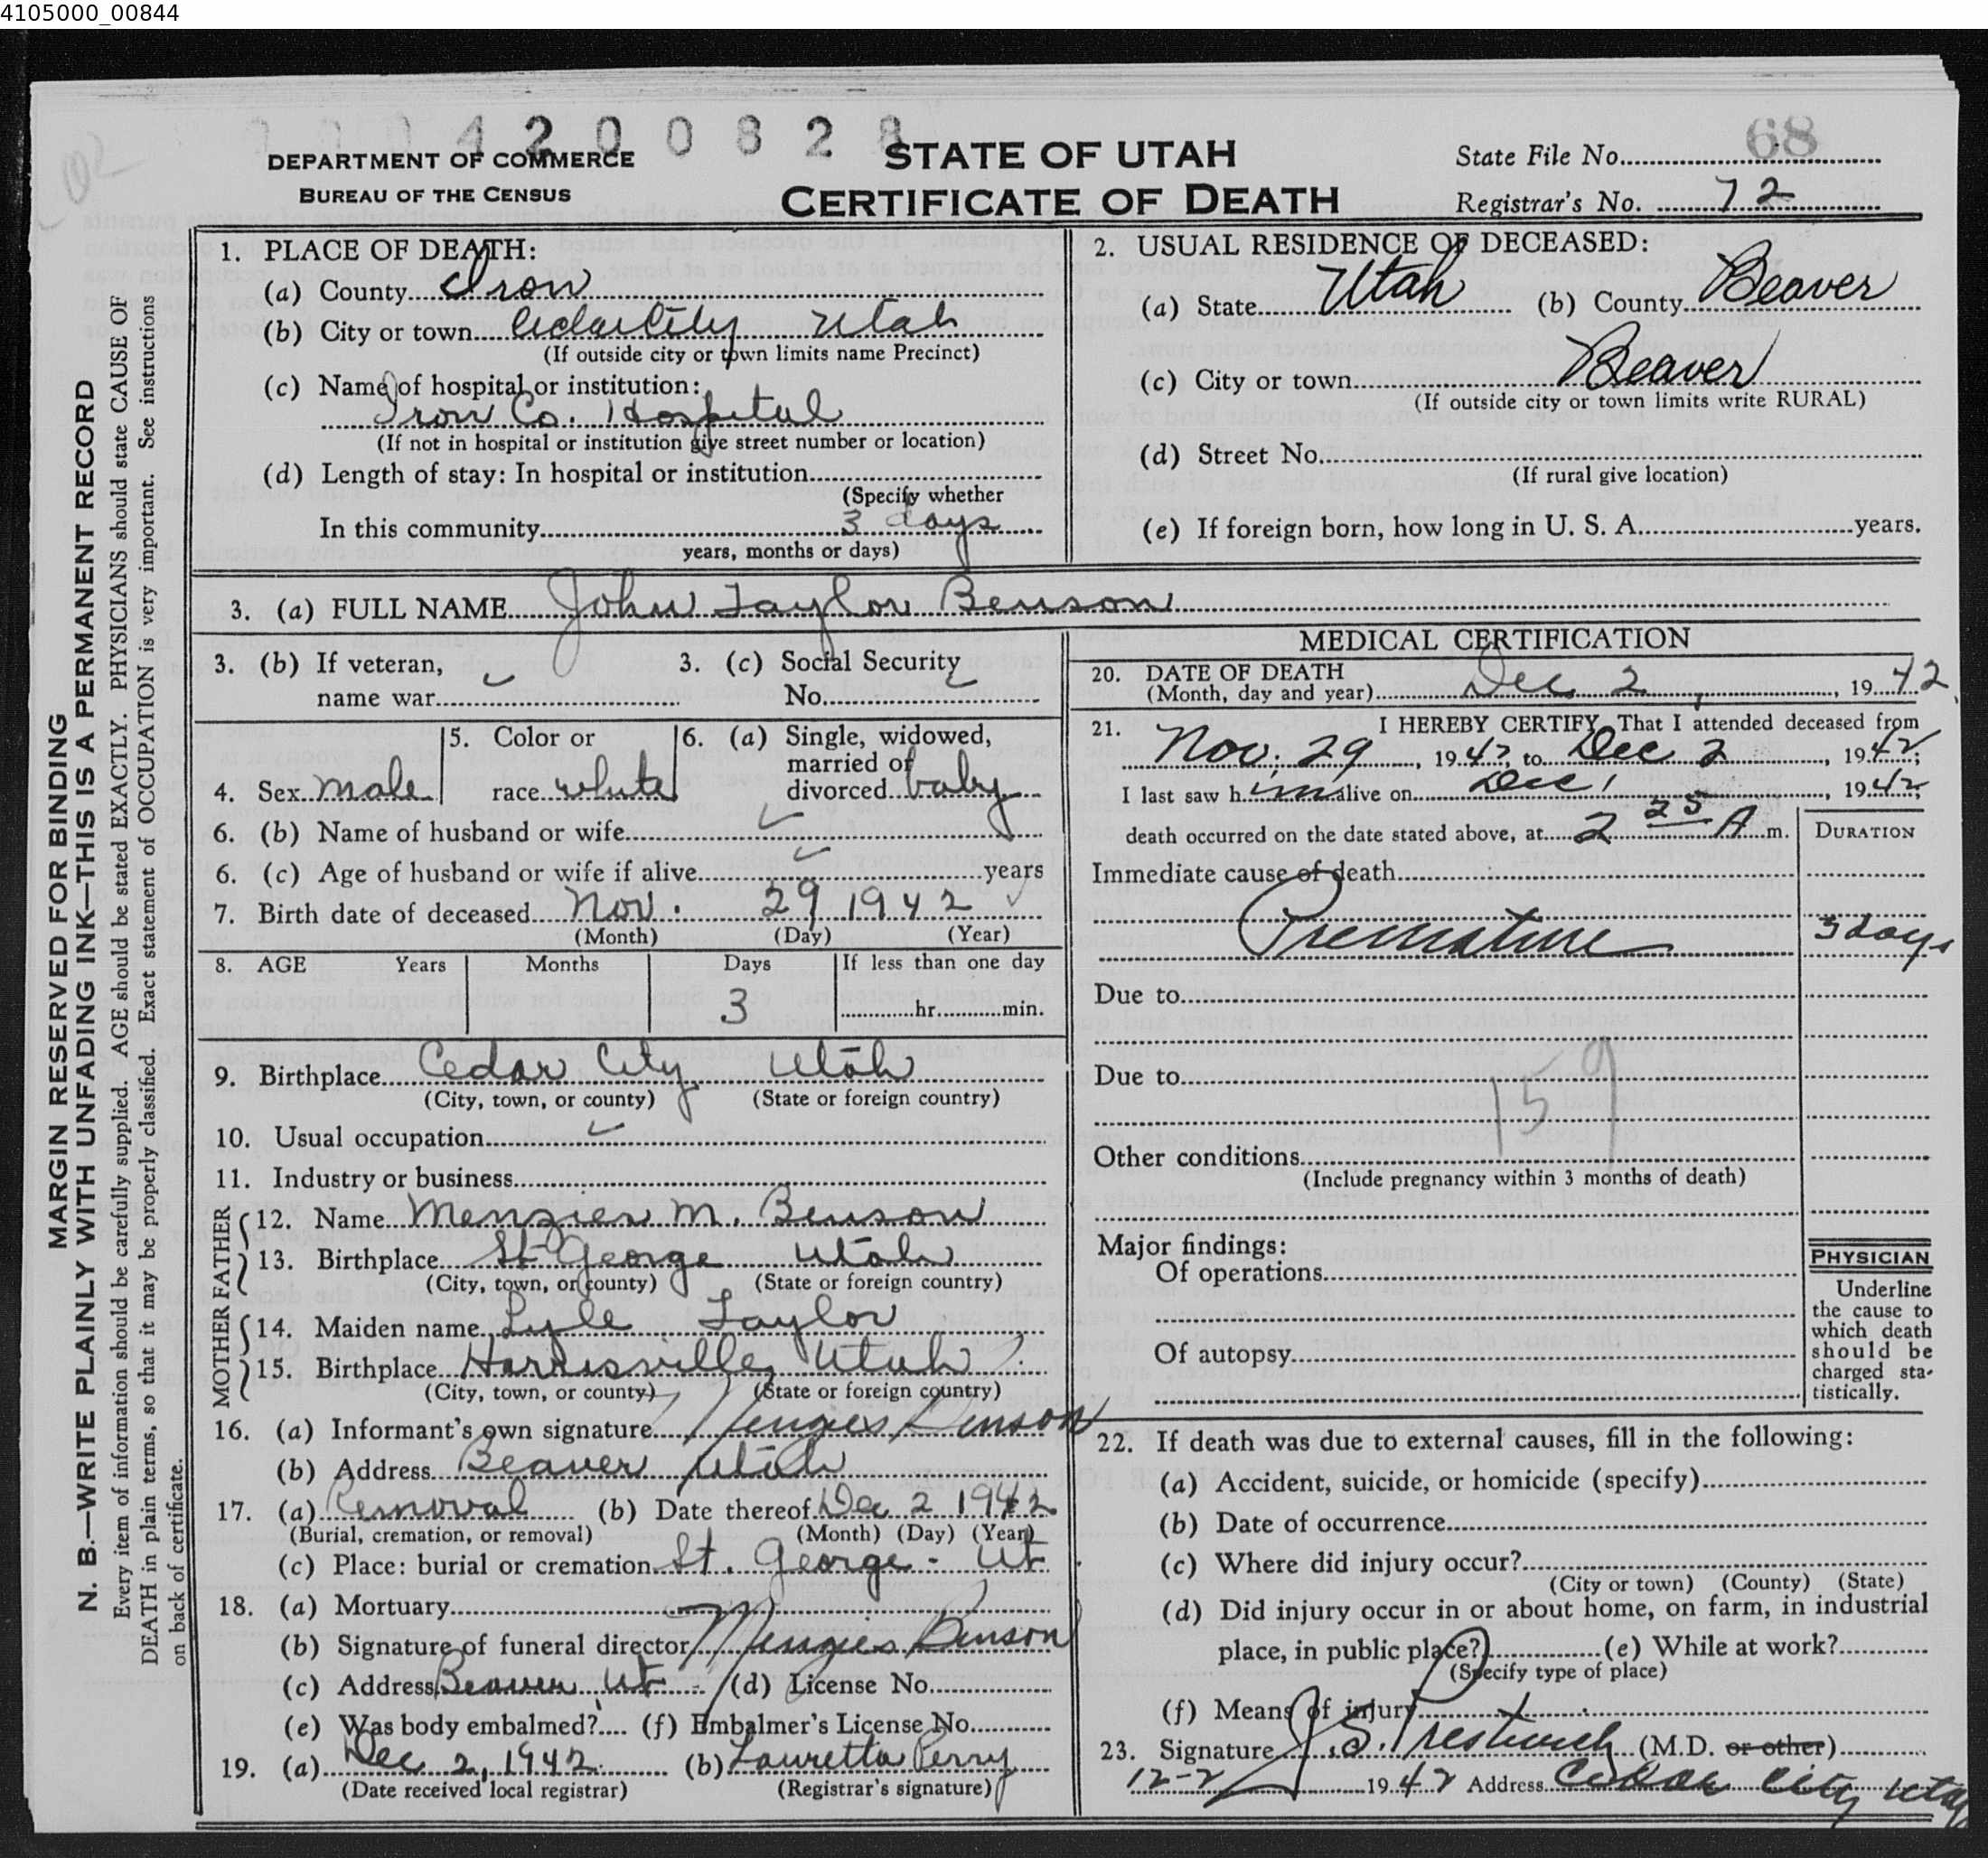 4105000_00844
4 2 0 0 8 2 8
DEPARTMENT OF COMMERCE
BUREAU OF THE CENSUS
STATE OF UTAH
CERTIFICATE OF DEATH
State File No. 68
Registrar's No. 72
MARGIN RESERVED FOR BINDING
N. B.—WRITE PLAINLY WITH UNFADING INK—THIS IS A PERMANENT RECORD
Every item of information should be carefully supplied. AGE should be stated EXACTLY. PHYSICIANS should state CAUSE OF
DEATH in plain terms, so that it may be properly classified. Exact statement of OCCUPATION is very important. See instructions
on back of certificate.
1. PLACE OF DEATH:
(a) County Iron
(b) City or town Cedar City Utah
(If outside city or town limits name Precinct)
(c) Name of hospital or institution:
Iron Co. Hospital
(If not in hospital or institution give street number or location)
(d) Length of stay: In hospital or institution
(Specify whether
In this community 3 days
years, months or days)
2. USUAL RESIDENCE OF DECEASED:
(a) State Utah (b) County Beaver
(c) City or town Beaver
(If outside city or town limits write RURAL)
(d) Street No.
(If rural give location)
(e) If foreign born, how long in U. S. A. years.
3. (a) FULL NAME John Taylor Benson
3. (b) If veteran,
name war
3. (c) Social Security
No.
4. Sex male
5. Color or
race white
6. (a) Single, widowed,
married or
divorced baby
6. (b) Name of husband or wife
6. (c) Age of husband or wife if alive years
7. Birth date of deceased Nov. 29 1942
(Month) (Day) (Year)
8. AGE Years Months Days If less than one day
3 hr. min.
9. Birthplace Cedar City Utah
(City, town, or county) (State or foreign country)
10. Usual occupation
11. Industry or business
FATHER
12. Name Menzies M. Benson
13. Birthplace St George Utah
(City, town, or county) (State or foreign country)
MOTHER
14. Maiden name Lyle Taylor
15. Birthplace Harrisville, Utah
(City, town, or county) (State or foreign country)
16. (a) Informant's own signature Menzies Benson
(b) Address Beaver Utah
17. (a) Removal (b) Date thereof Dec 2 1942
(Burial, cremation, or removal) (Month) (Day) (Year)
(c) Place: burial or cremation St. George - Ut
18. (a) Mortuary
(b) Signature of funeral director Menzies Benson
(c) Address Beaver, Ut (d) License No.
(e) Was body embalmed? (f) Embalmer's License No.
19. (a) Dec 2, 1942 (b) Lauretta Perry
(Date received local registrar) (Registrar's signature)
MEDICAL CERTIFICATION
20. DATE OF DEATH
(Month, day and year) Dec 2, 1942
21. I HEREBY CERTIFY, That I attended deceased from
Nov. 29, 1942, to Dec 2, 1942,
I last saw h im alive on Dec 1, 1942,
death occurred on the date stated above, at 2 25 A m.
DURATION
Immediate cause of death
Premature 3 days
Due to
Due to
159
Other conditions
(Include pregnancy within 3 months of death)
Major findings:
Of operations
Of autopsy
PHYSICIAN
Underline
the cause to
which death
should be
charged sta-
tistically.
22. If death was due to external causes, fill in the following:
(a) Accident, suicide, or homicide (specify)
(b) Date of occurrence
(c) Where did injury occur?
(City or town) (County) (State)
(d) Did injury occur in or about home, on farm, in industrial
place, in public place? (e) While at work?
(Specify type of place)
(f) Means of injury
23. Signature J. S. Prestwich (M.D. or other)
12-2 1942 Address Cedar City Utah